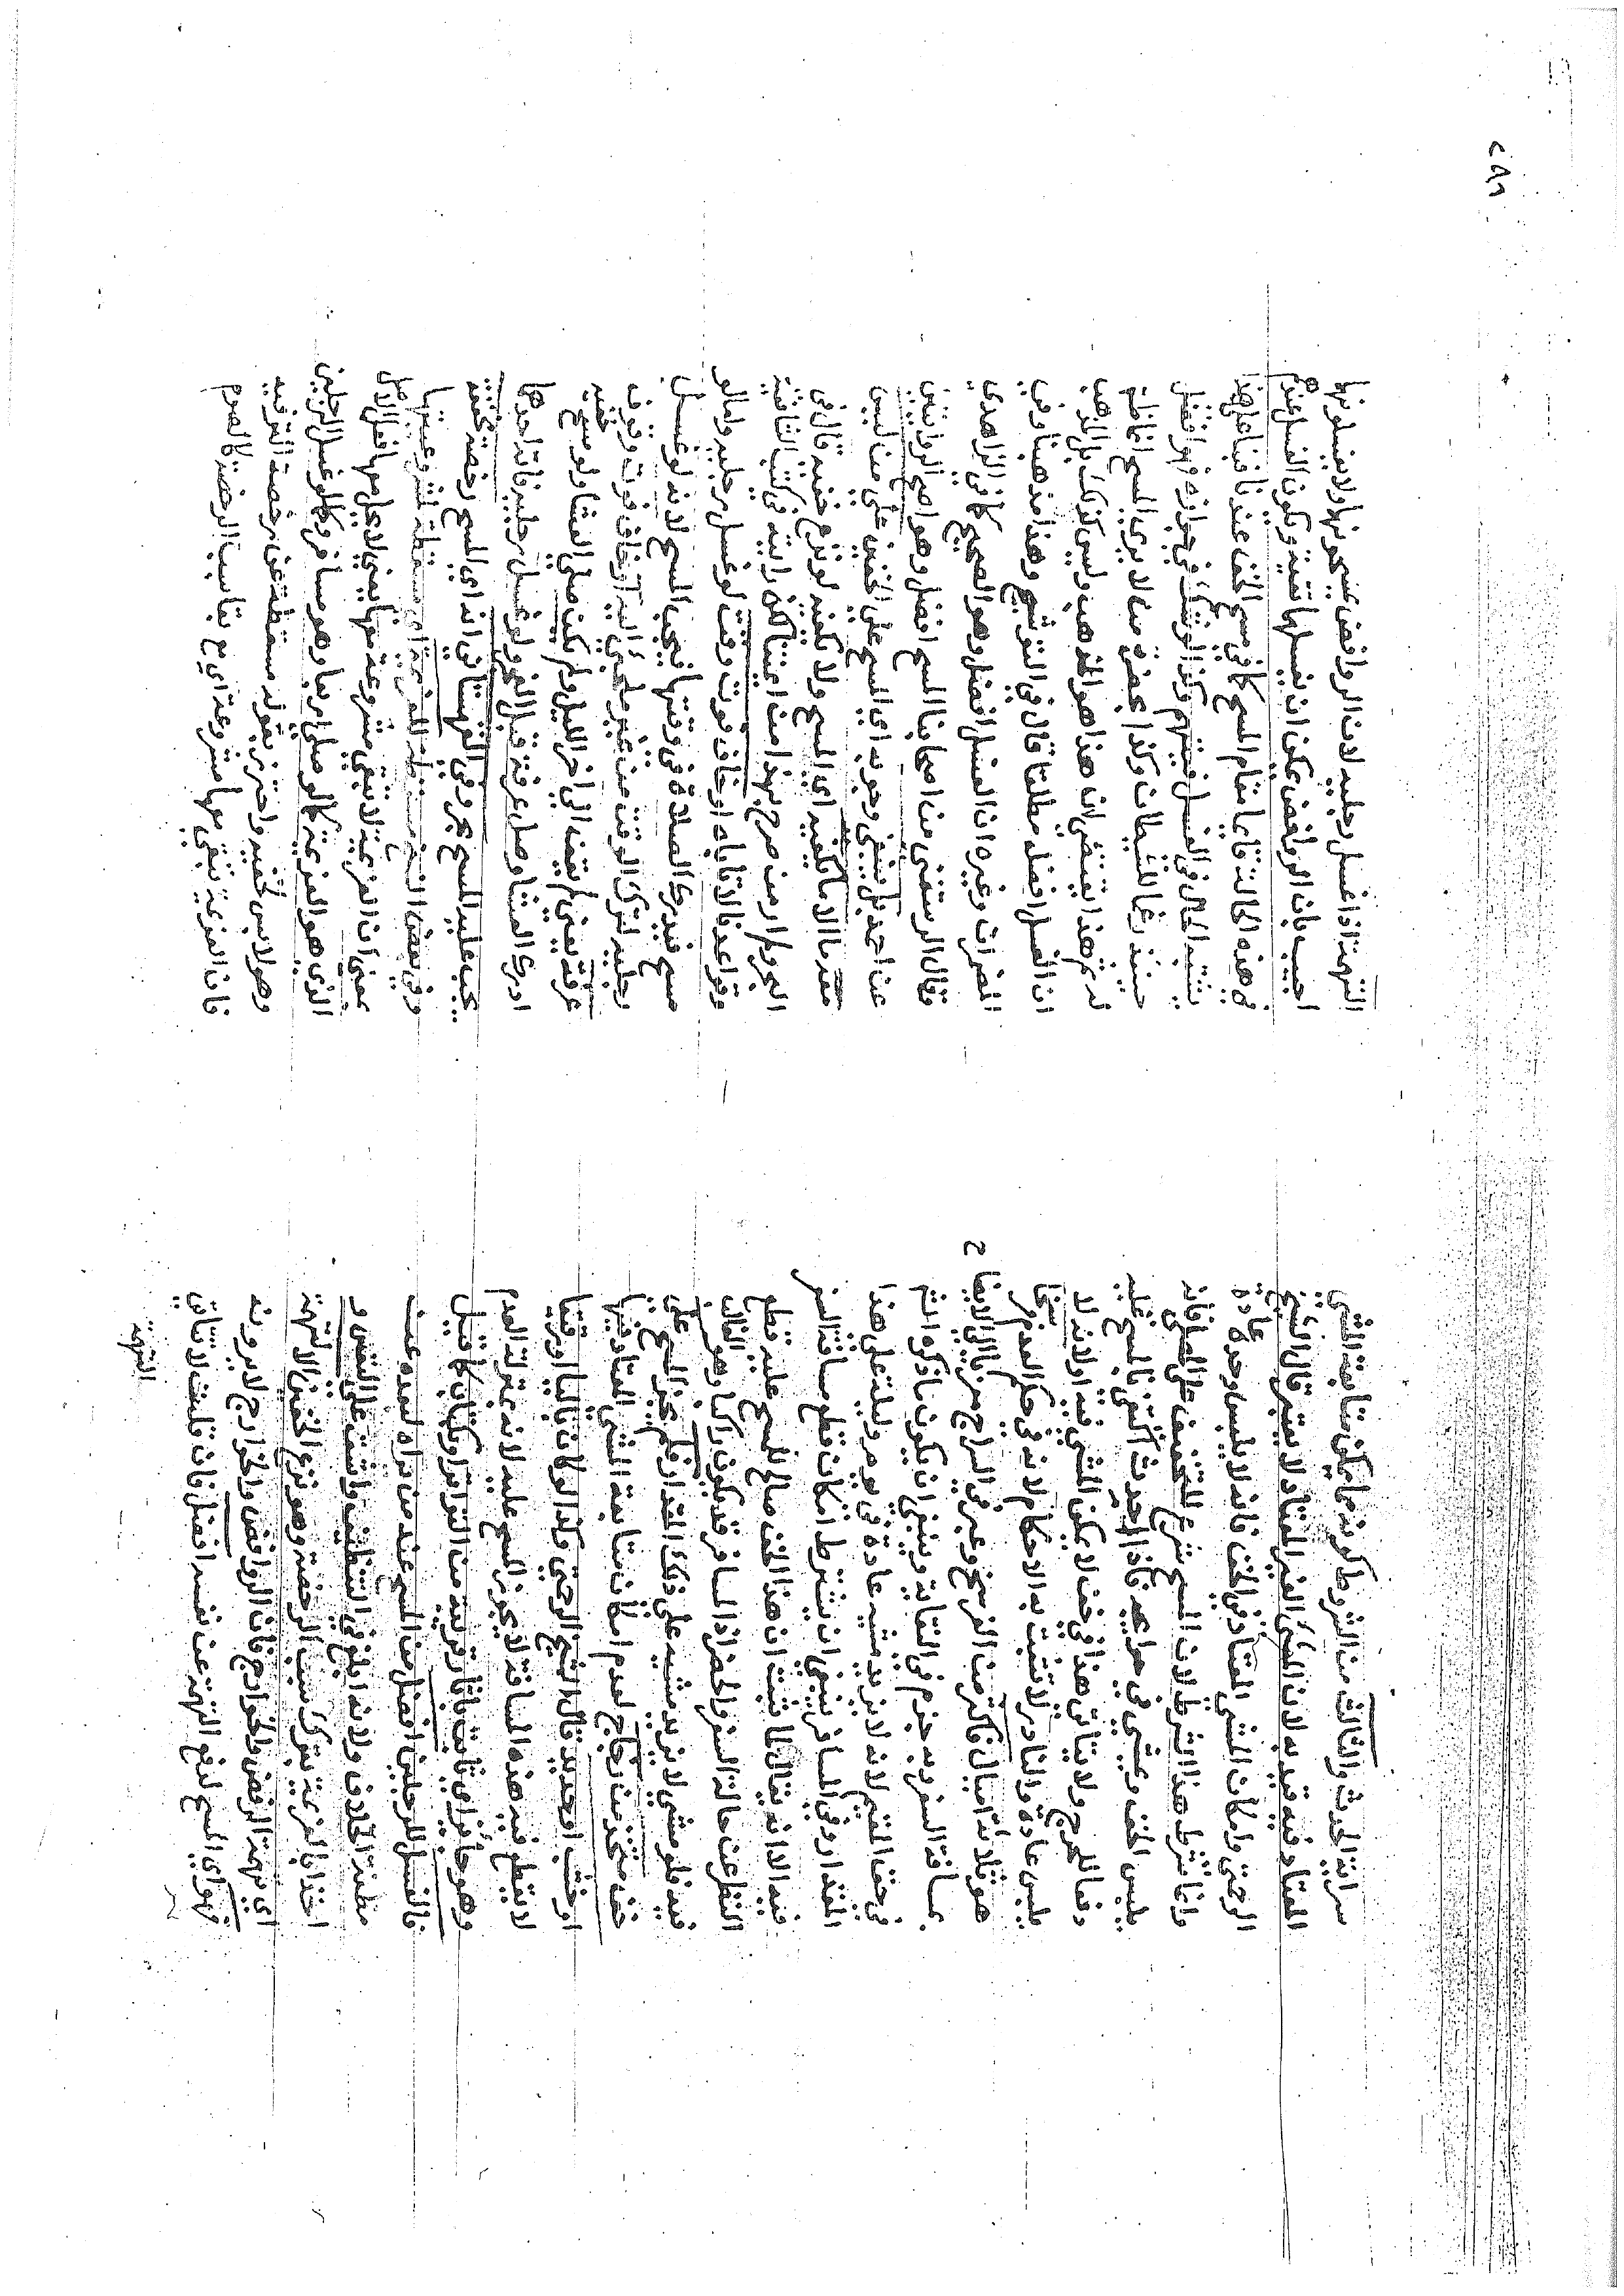 سراية الحدث والثالث من الشروط كونه مما يمكن متابعة المشي
المعتاد فيه قيد به لان المشي الغير المعتاد لا يعتبر قال الشيخ
الرحمتي وامكان المشي المعتاد في الخف فانه لا يلبس وحده عادة
وانما شرط هذا الشرط لان المسح شرع للتخفيف على المصلي فانه
يلبس الخف ويمشي في حوايجه فاذا احدث اكتفى بالمسح عليه
دفعا للحرج ولا يتأتى هذا في خف لا يمكن المشي فيه اولا نه لا
يلبس عادة والنادر لا تثبت به الاحكام لانه في حكم العدم
هو ثلاثة اميال فاكثر من الفرسخ وعبر في السراج
مسافة السفر وبه جزم في النقاية وينبغي ان يكون ما ذكره الشـ
في حق المقيم لانه لا يزيد مشيه عادة في يوم وليلة على هذا
المقدار وفي المسافر ينبغي ان يشترط امكان قطع مسافة السفر
فيه الا انه يقال لما ثبت ان هذا الخف صالح للمسح عليه قطع
النظر عن حالة السفر والحضر اذ المسافر قد يكون راكبا وهو الغالب
فيه فلو مشى لا يزيد مشيه على ذلك المقدار فلم يجز المسح على
خف متخذ من زجاج لعدم امكان متابعة المشي المعتاد فيها
او خشب او حديد قال الشيخ الرحمتي وكذا لو كان او رقيقا
لا يقطع فيه هذه المسافة لا يجوز المسح عليه لانه بمنزلة العدم
وهو جائز اي ثابت باثار قريبة من التواتر او بكتاب كما قيل
فالغسل للرجلين افضل من المسح عند من يراه لبعده عن
مظنة الخلاف ولانه ابلغ في التنظيف واشق على النفس و
اخذا بالعزيمة بترك سبب الرخصة وهو نزع الخفين الا لتهمة
اي تهمة الرفض والخوارج فان الروافض والخوارج لا يرونه
فهو اي المسح لدفع التهمة عن نفسه افضل فان قلت لا تتأتى
التهمة
التهمة اذا غسل رجليه لان الروافض يمسحونها ولا يغسلونها
اجيب بان الروافض يمكن ان يغسلوها تقية ويكون الغسل عندهم
في هذه الحالة قائما مقام المسح كما في مسح الخف عندنا فبناء على هذا
يشتبه الحال في الغسل فيتهم وكذا لو شك في جوازه فهو افضل
حينئذ رغما للشيطان وكذا بحضرة من لا يرى المسح
ثم هذا يقتضي ان هذا هو المذهب وليس كذلك بل المذهب
ان الغسل افضل مطلقا قال في التوشيح وهذا مذهبنا وفي
المضمرات وغيره ان الغسل افضل وهو الصحيح كما في الزاهدي
فقال الرستغفني من اصحابنا المسح افضل وهو اصح الروايتين
عن احمد بل ينبغي وجوبه اي المسح على الخفين على من ليس
معه ما الا ما يكفيه اي المسح ولا يكفيه لو نزع خفيه قال في
البحر ولم ار من صرح بهذا من ائمتنا لكن رايته في كتب الشافعية
وقواعدنا لا تأباه او خاف فوت وقت لو غسل رجليه واما لو
مسح فيدرك الصلاة في وقتها فيجب المسح لانه لو غسل
رجليه لترك الوقت من غير ملجئ اليه او خاف فوت وقوف
عرفة يعني لم يقف الى اخر الليل ولم يكن صلى العشا ولو مسح خفيه
ادرك العشا وصل عرفة قبل الفجر ولو غسل رجليه فاته احدهما
يجب عليه المسح بحر وفي القهستاني انه اي المسح رخصة
وفي بعض النسخ مسقطة للعزيمة اي مسقطة لمشروعيتها
بمعنى ان العزيمة لا تبقى مشروعة معها يعني لا يحل معها فعل الاصل
الذي هو العزيمة كما لو صلى اربعا وهو مسافر وكما لو غسل الرجلين
وهو لابس خفيه واحترز بقوله مسقطة عن رخصة الترفيه
فان العزيمة تبقى معها مشروعة اي مع مناسب الرخصة كالصوم